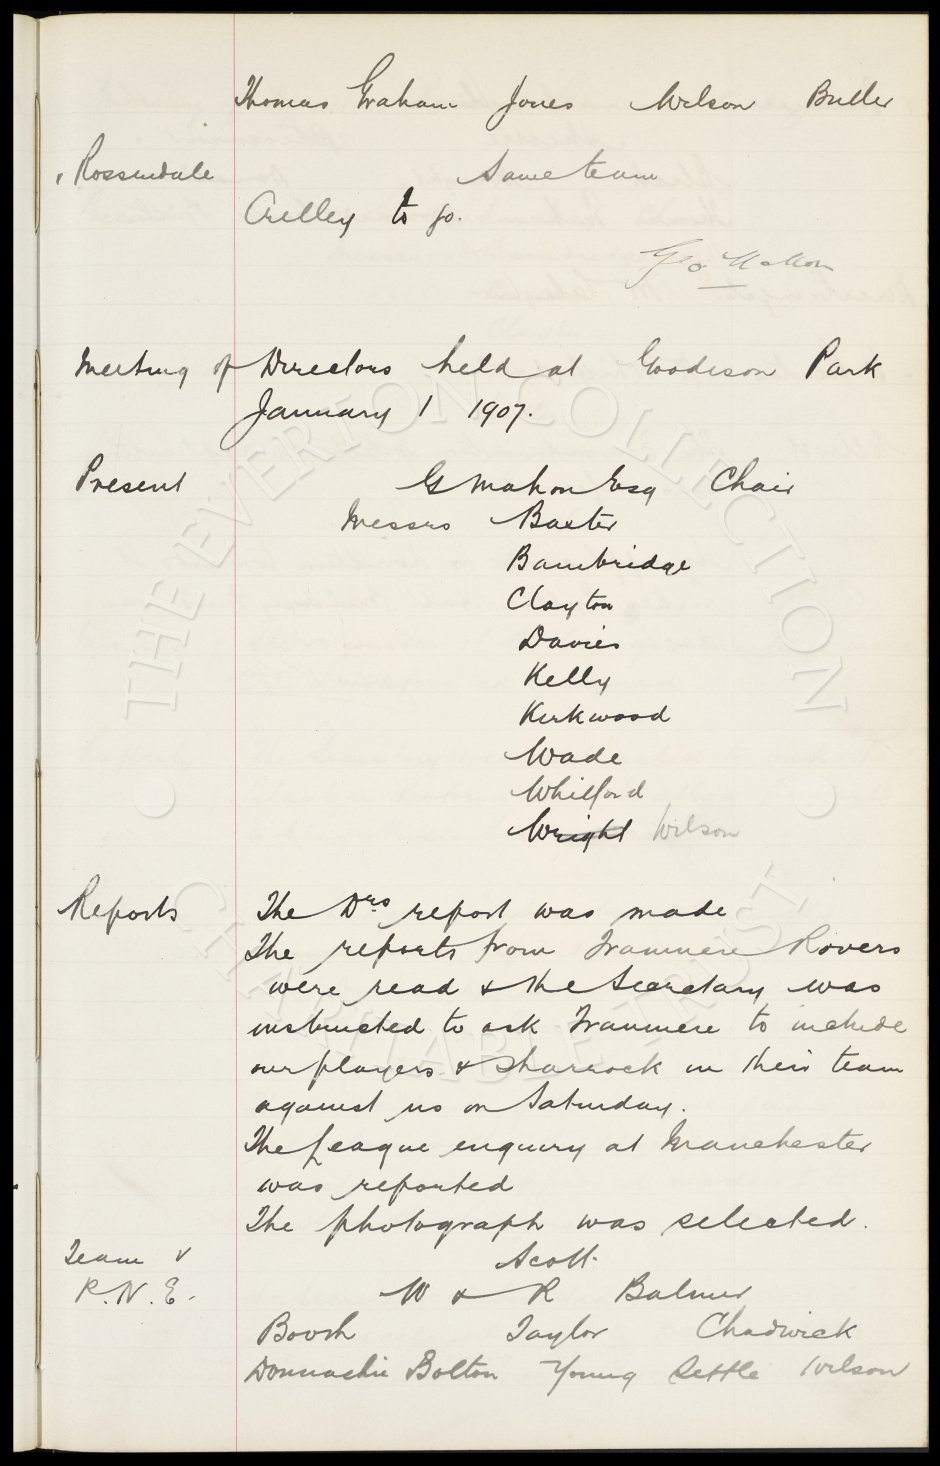 Thomas Graham Jones Wilson Butler
v Rossendale Same team
Crelley to go.
Geo Mahon
Meeting of Directors held at Goodison Park
January 1 1907.
Present G Mahon Esq Chair
Messrs Baxter
Bainbridge
Clayton
Davies
Kelly
Kirkwood
Wade
Whitford
Wright Wilson
Reports The Drs report was made
The reports from Tranmere Rovers
were read & the Secretary was
instructed to ask Tranmere to include
our players & Sharrock in their team
against us on Saturday.
The League enquiry at Manchester
was reported
The photograph was selected.
Team v Scott.
P. N. E. W & R Balmer
Booth Taylor Chadwick
Donnachie Bolton Young Settle Wilson
THE EVERTON COLLECTION
CHARITABLE TRUST